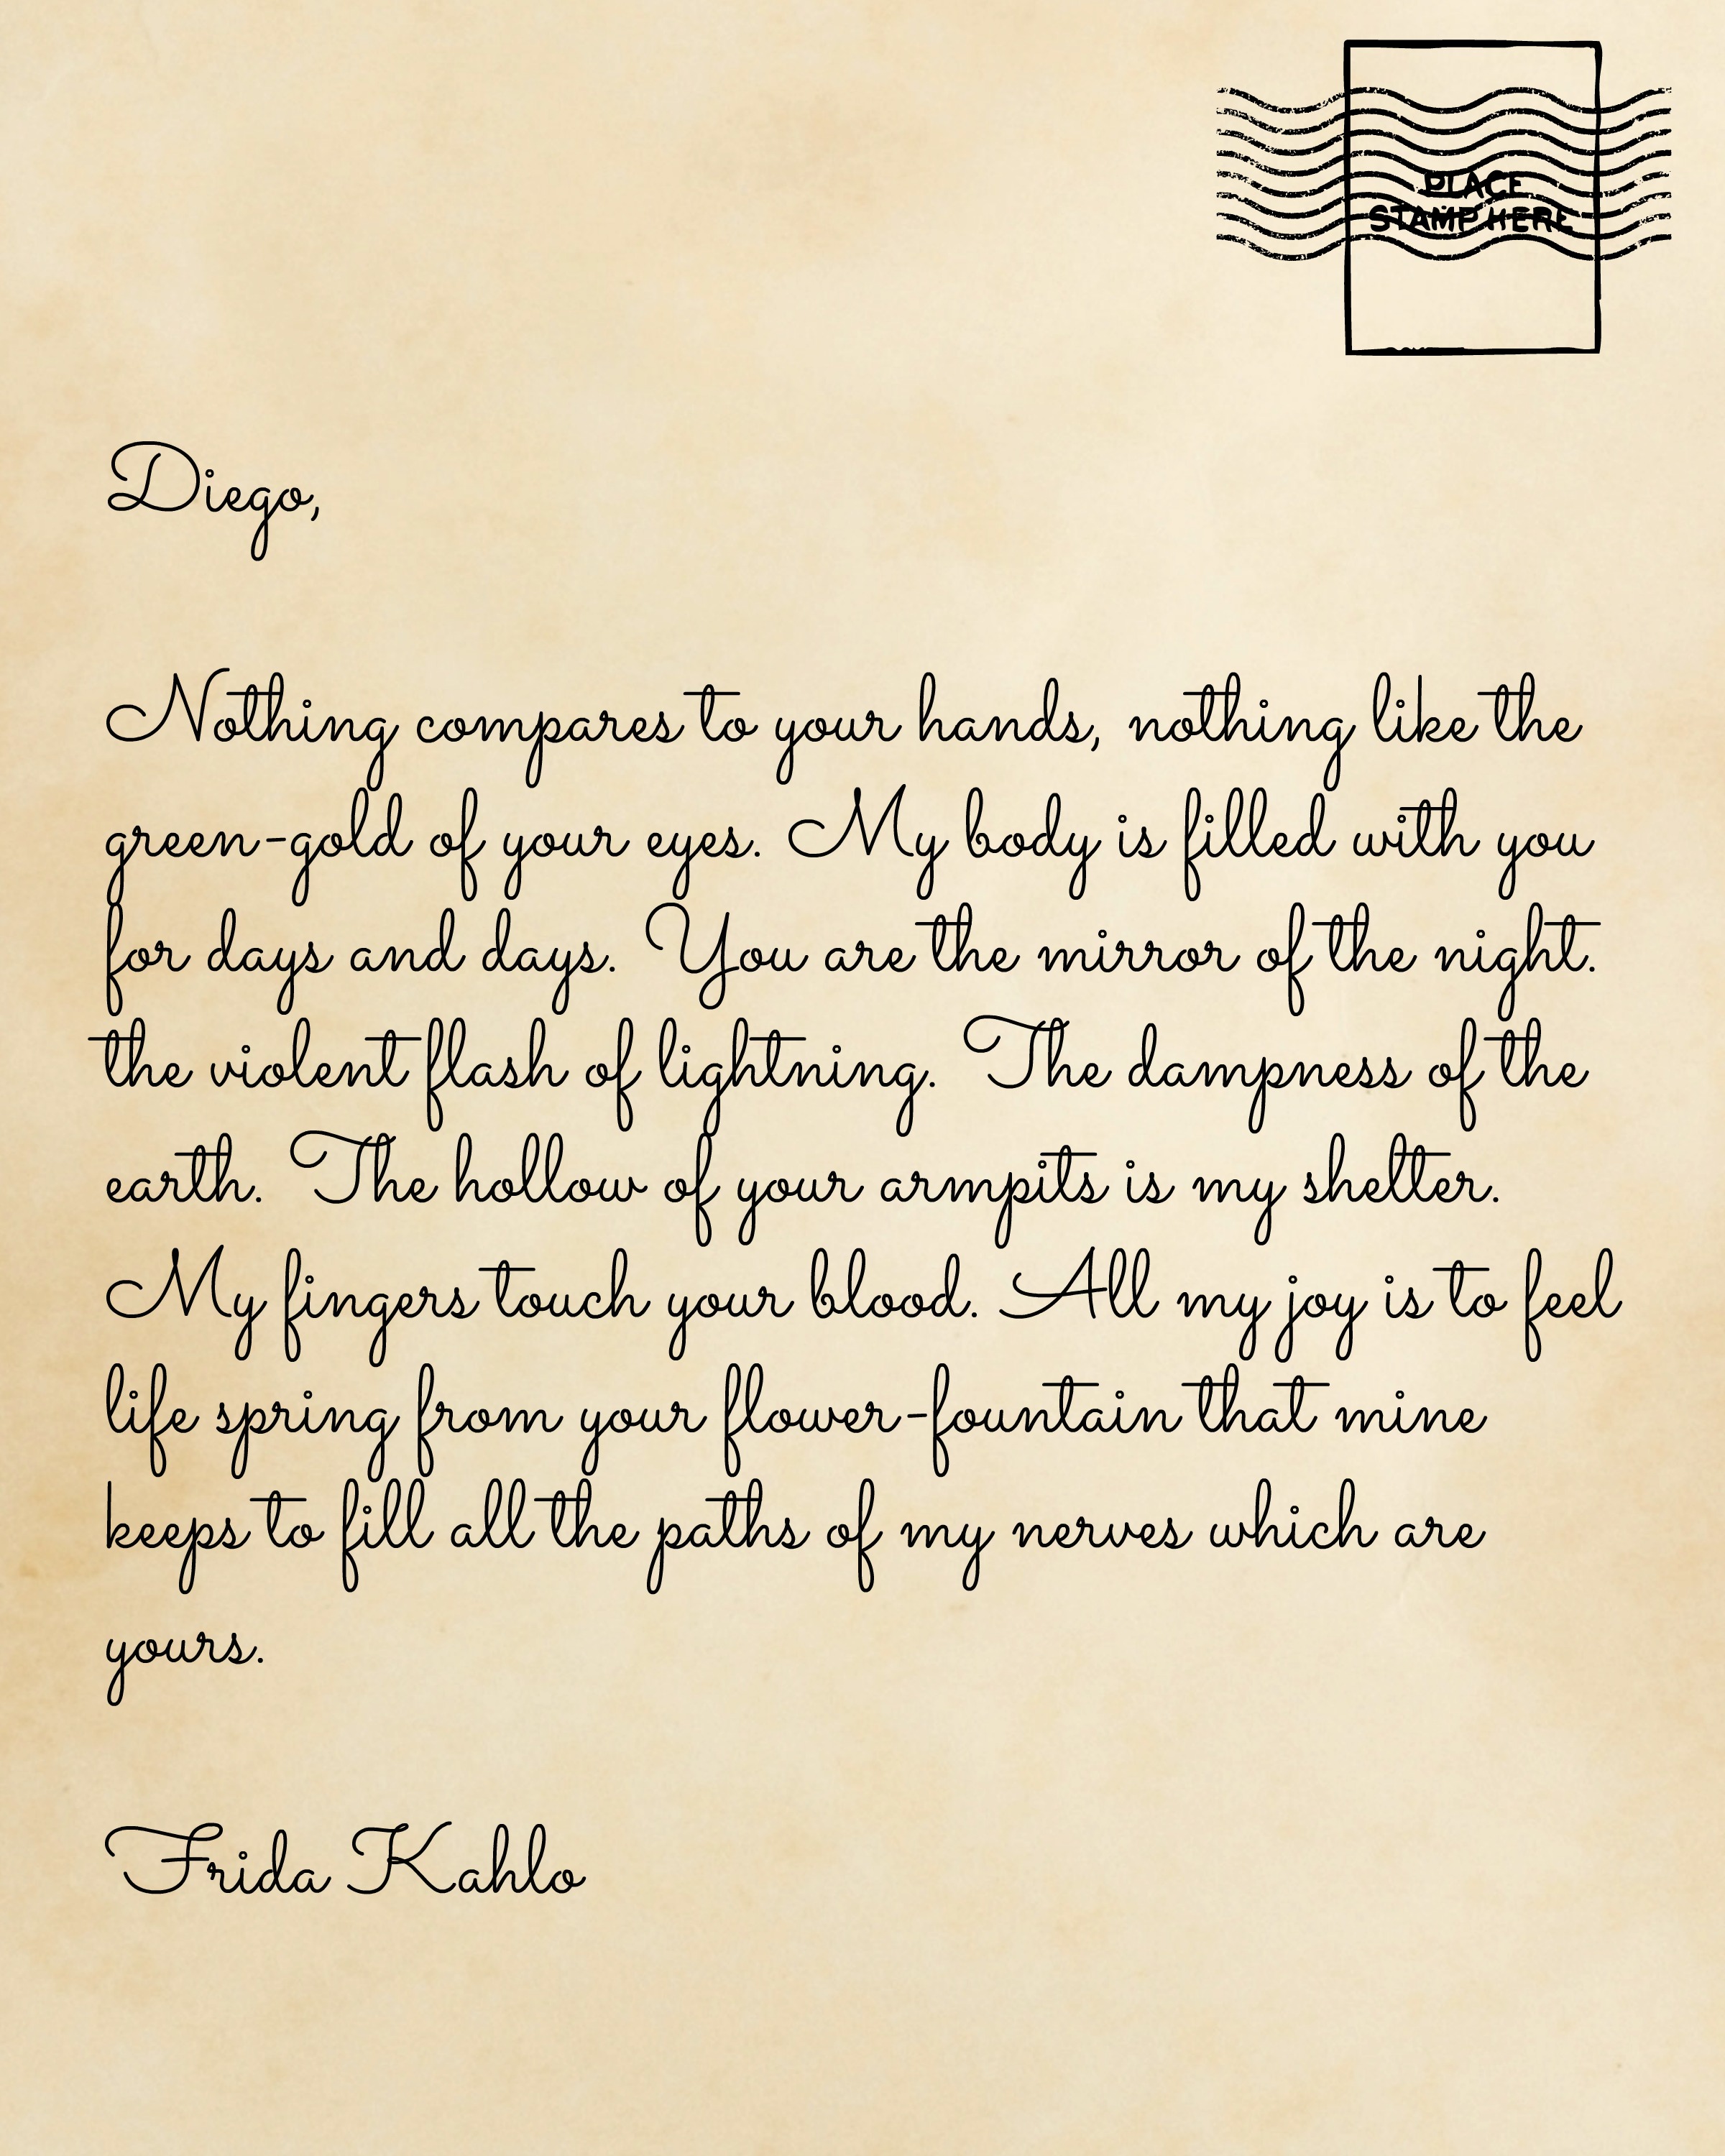 PLACE
STAMP HERE
Diego,
Nothing compares to your hands, nothing like the
green-gold of your eyes. My body is filled with you
for days and days. You are the mirror of the night.
the violent flash of lightning. The dampness of the
earth. The hollow of your armpits is my shelter.
My fingers touch your blood. All my joy is to feel
life spring from your flower-fountain that mine
keeps to fill all the paths of my nerves which are
yours.
Frida Kahlo